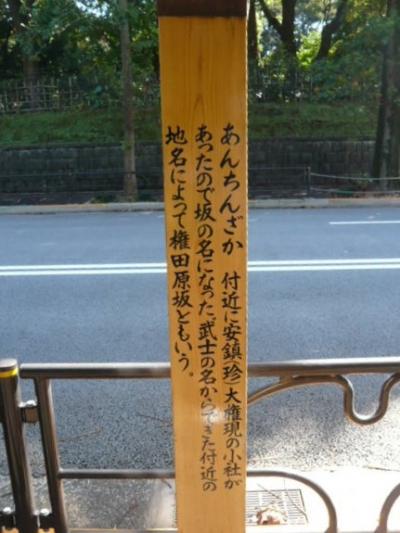 あんちんざか　付近に安鎮(珍)大権現の小社が
あったので坂の名になった。武士の名からできた付近の
地名によって権田原坂ともいう。